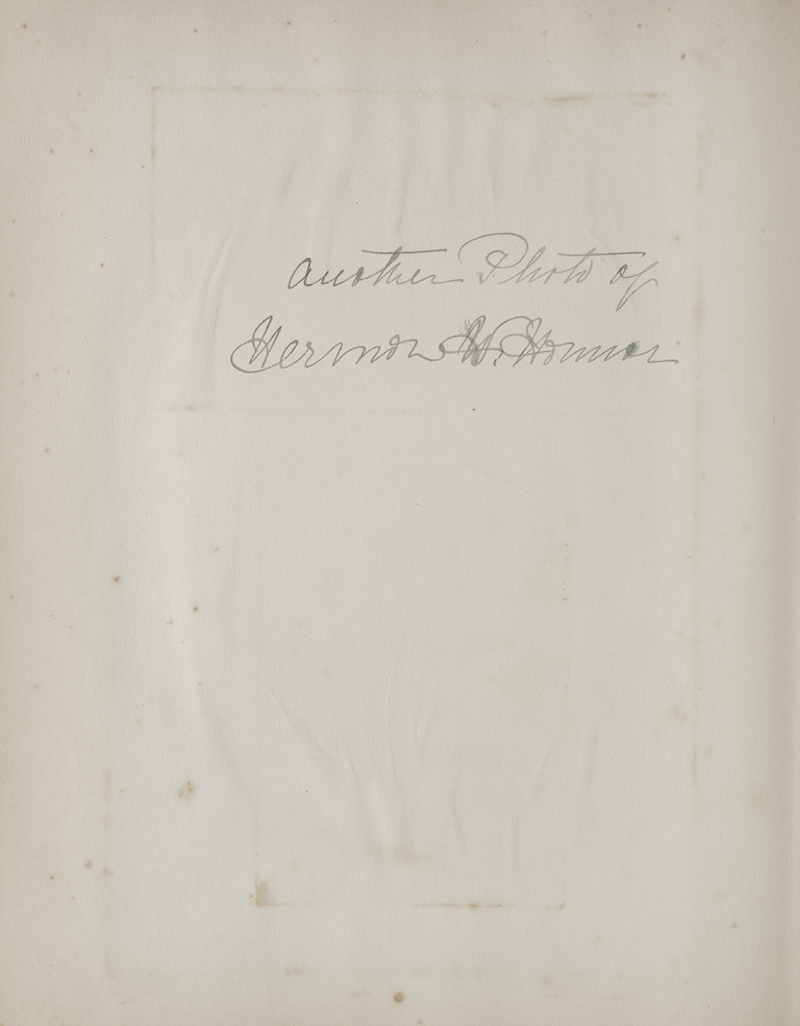 another Photo of
Hermon W. Honnor